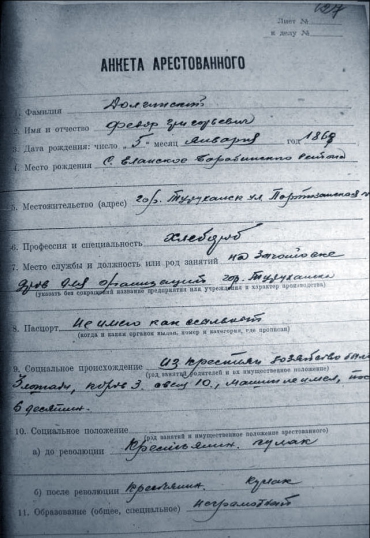 127
Лист №
к делу №
АНКЕТА АРЕСТОВАННОГО
1. Фамилия Долгинский
2. Имя и отчество Федор Григорьевич
3. Дата рождения: число „5" месяц Января год 186
4. Место рождения С. Барабинского
5. Местожительство (адрес) гор. Туруханск ул Партизанская
6. Профессия и специальность Хлебороб
7. Место службы и должность или род занятий на заготовке
дров для организаций гор. Туруханска
(указать без сокращений название предприятия или учреждения и характер производства)
8. Паспорт Не имею как ссыльный
(когда и каким органом выдан, номер и категория, где прописан)
9. Социальное происхождение Из крестьян хозяйство было
(род занятий родителей и их имущественное положение)
3 лошади, коров 3, овец 10, машин не имел,
6 десятин.
10. Социальное положение
(род занятий и имущественное положение арестованного)
а) до революции Крестьянин кулак
б) после революции Крестьянин Кулак
11. Образование (общее, специальное) неграмотный